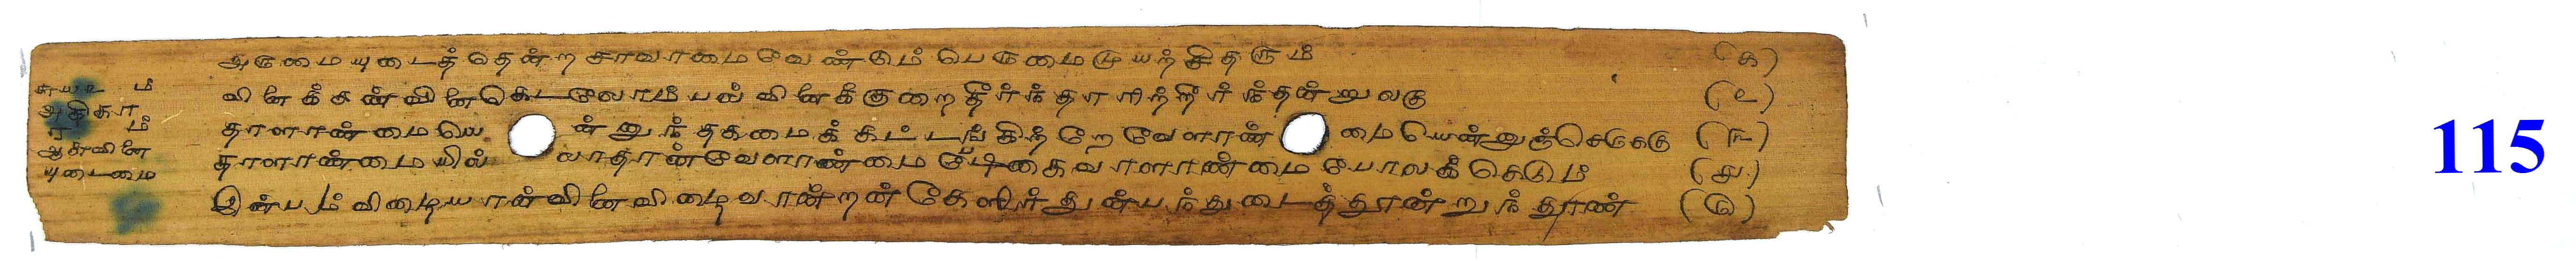 அருமையுடைத்தென்றசாவாமைவேண்டும் பெருமைமுயற்சிதரும் (௧)
வினைக்கண்வினைகெடலோம்பல்வினைக்குறைதீர்ந்தாரிற்றீர்ந்தன்றுலகு (௨)
தாளாண்மையென்னுந்தகைமைக்கட்டங்கிற்றேவேளாண்மையென்னுஞ்செருக்கு (௩)
தாளாண்மையில்லாதான்வேளாண்மைபேடிகைவாளாண்மைபோலக்கெடும் (௪)
இன்பம்விழையான்வினைவிழைவான்றன்கேளிர்துன்பந்துடைத்தூன்றுந்தூண் (௫)
அதிகா
ரம்
ஆள்வினை
யுடைமை
115